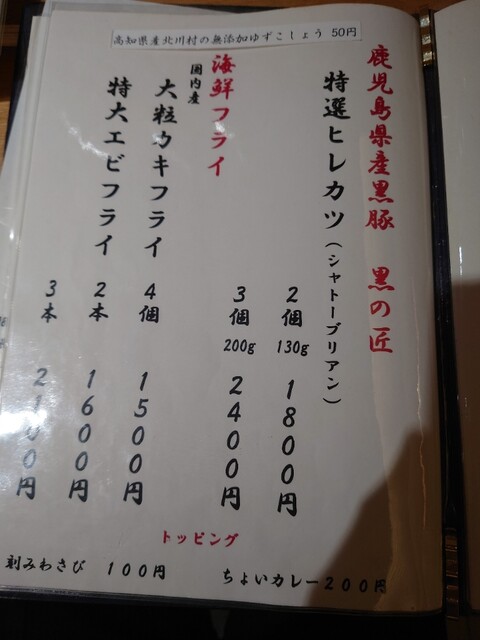 高知県産北川村の無添加ゆずこしょう 50円
鹿児島県産黒豚 黒の匠
特選ヒレカツ(シャトーブリアン)
2個 130g 1800円
3個 200g 2400円
海鮮フライ
国内産
大粒カキフライ 4個 1500円
特大エビフライ 2本 1600円
3本 2100円
トッピング
刻みわさび 100円
ちょいカレー200円